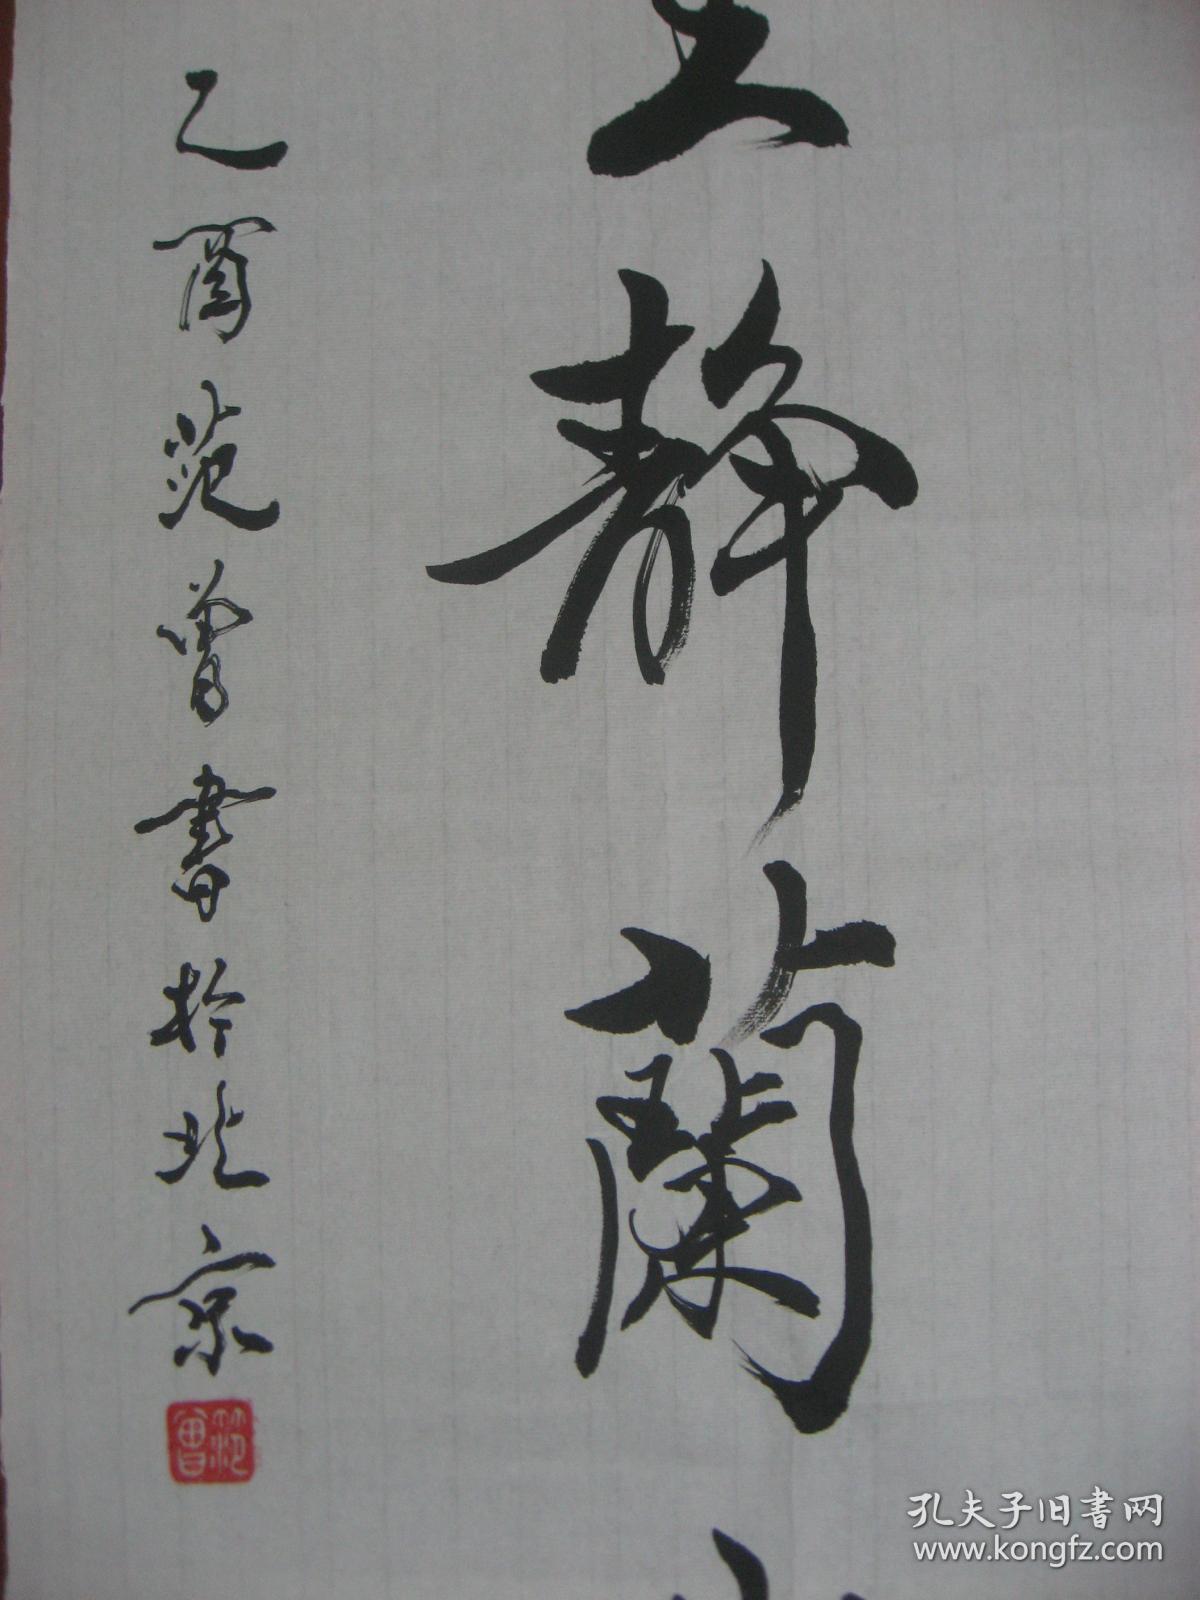 静蘭
乙酉范曾書於北京
範曾
孔夫子旧書网
www.kongfz.com